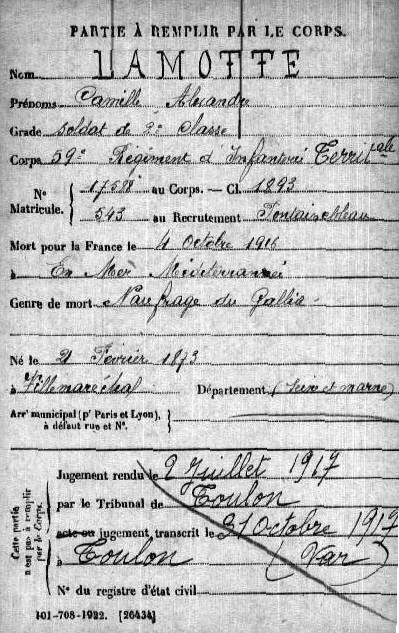 PARTIE À REMPLIR PAR LE CORPS.
Nom LAMOTTE
Prénoms Camille Alexandre
Grade Soldat de 2e Classe
Corps 59e Régiment d'Infanterie Territale
N° Matricule. { 17588 au Corps. — Cl. 1893
543 au Recrutement Fontainebleau
Mort pour la France le 4 Octobre 1916
à En Mer Méditerranée
Genre de mort Naufrage du Gallia
Né le 21 Février 1873
à Villemaréchal Département (Seine et marne)
Arrt municipal (pr Paris et Lyon), à défaut rue et N°. }
Cette partie n'est pas à remplir par le Corps.
Jugement rendu le 2 Juillet 1917
par le Tribunal de Toulon
acte ou jugement transcrit le 31 Octobre 1917
à Toulon (Var)
N° du registre d'état civil
101-708-1922. [26434]